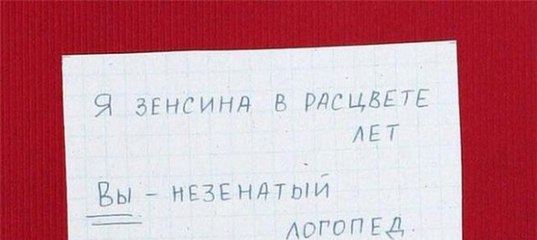 Я ЗЕНСИНА В РАСЦВЕТЕ
ЛЕТ
ВЫ - НЕЗЕНАТЫЙ
ЛОГОПЕД.